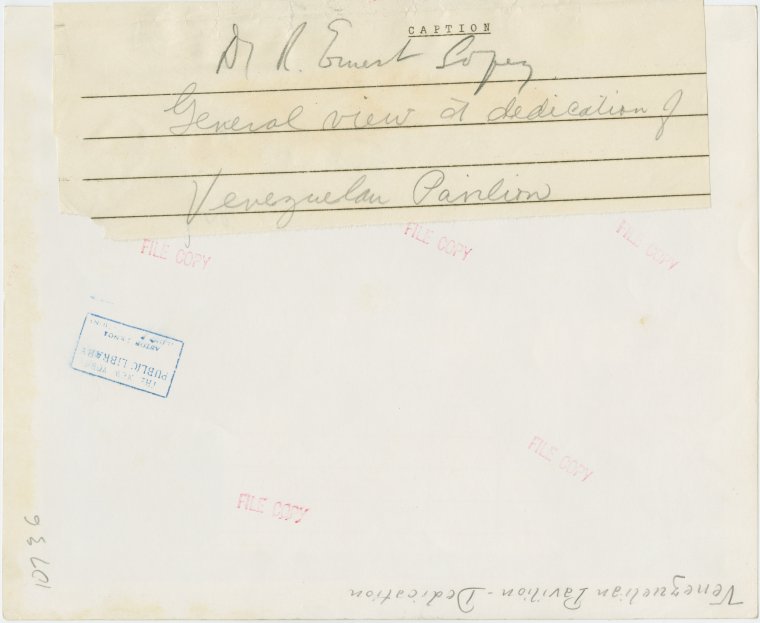 CAPTION
Dr R. Ernest Lopez
General view at dedication of
Venezuelan Pavilion
FILE COPY
FILE COPY
FILE COPY
THE NEW YORK
PUBLIC LIBRARY
ASTOR LENOX
FILE COPY
FILE COPY
1073 6
Venezuelian Pavilion - Dedication